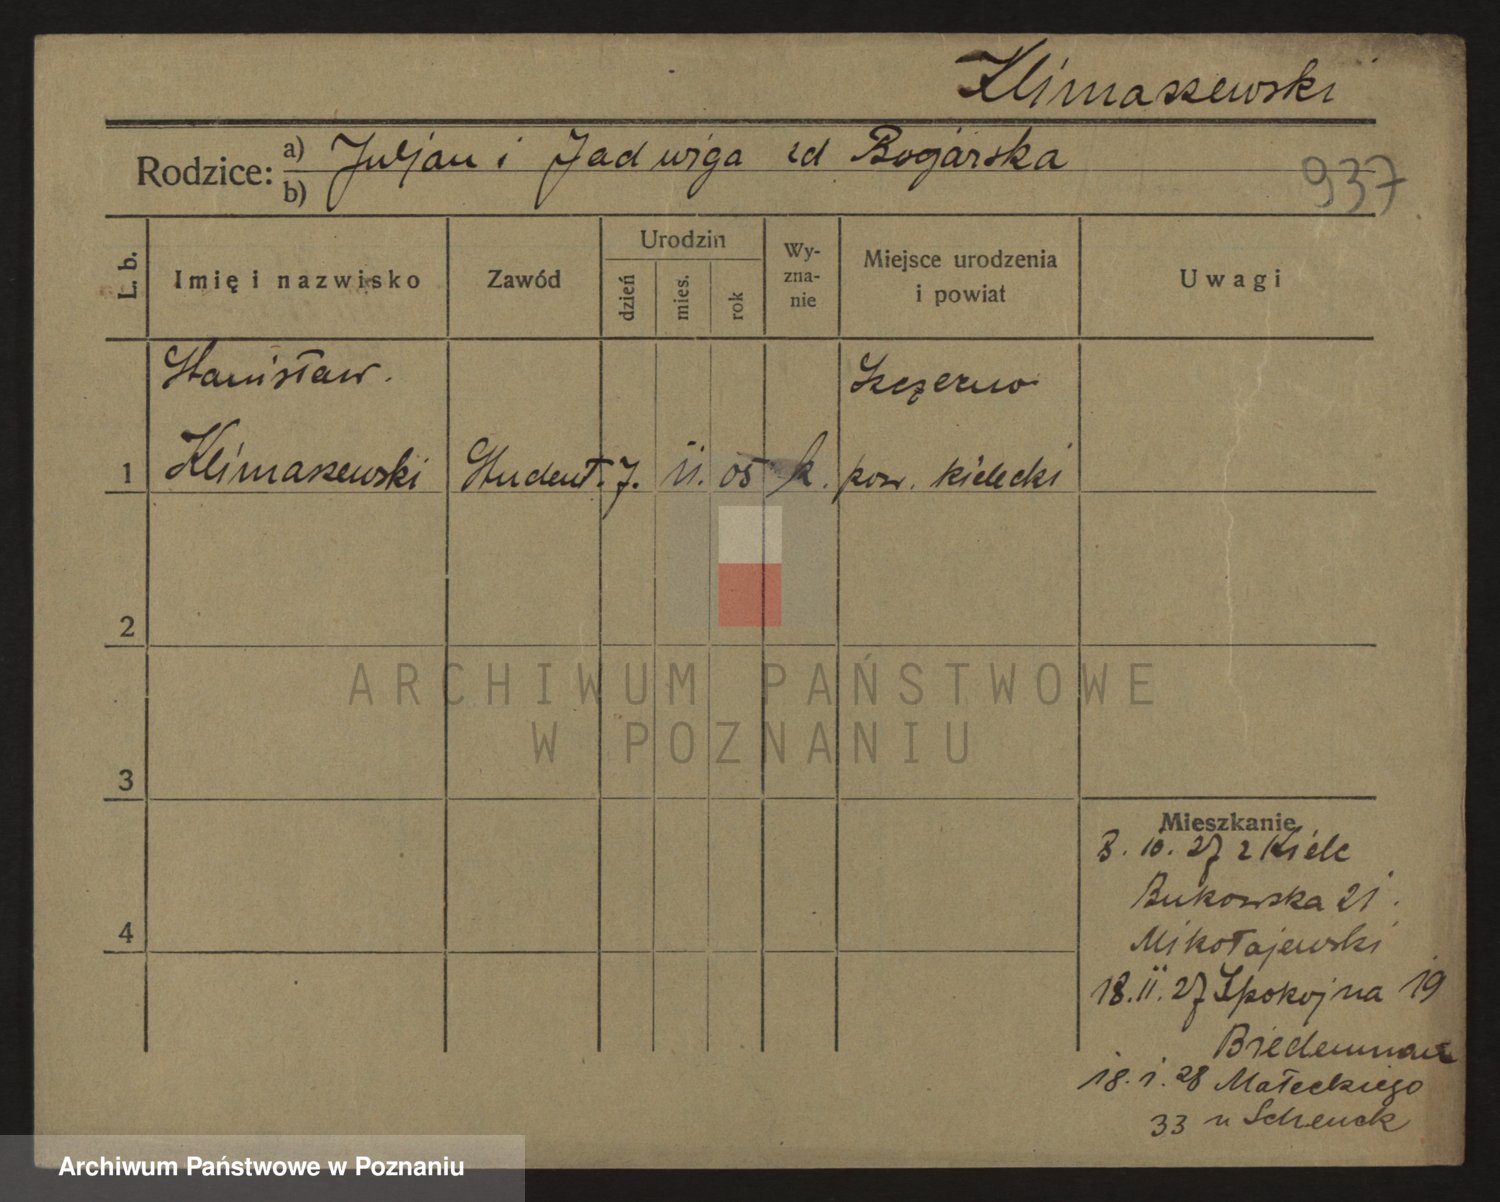 Klimaszewski
Rodzice: a) Juljan i Jadwiga zd Bogarska
b)
937
L. b.
Imię i nazwisko
Zawód
Urodzin
dzień
mies.
rok
Wy-
zna-
nie
Miejsce urodzenia
i powiat
Uwagi
Stanisław.
1 Klimaszewski Student. 7. 11. 05 k. pow. kielecki
2
3
4
ARCHIWUM PAŃSTWOWE
W POZNANIU
Mieszkanie
3. 10. 27 z Kielc
Bukowska 21.
Mikołajewski
18. 11. 27 Spokojna 19
Biedermann
18. 1. 28 Małeckiego
33 u Schenck
Archiwum Państwowe w Poznaniu